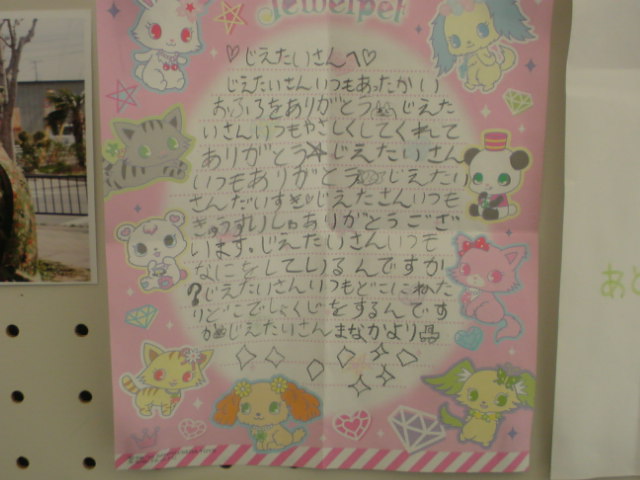 Jewelpet
♡じえたいさんへ♡
じえたいさんいつもあったかい
おふろをありがとうじえた
いさんいつもやさしくしてくれて
ありがとう☆じえたいさん
いつもありがとうじえたい
さんだいすき♡じえたさんいつも
きゅうすいしゃありがとうござ
います.じえたいさんいつも
なにをしているんですか
?じえたいさんいつもどこにねた
りどこでしょくじをするんです
かじえたいさんまなかより
あ